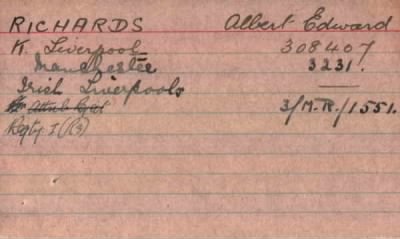 RICHARDS Albert Edward
K Liverpool 308407
Manchester 3231.
Irish Liverpools
3/M.R./1551.